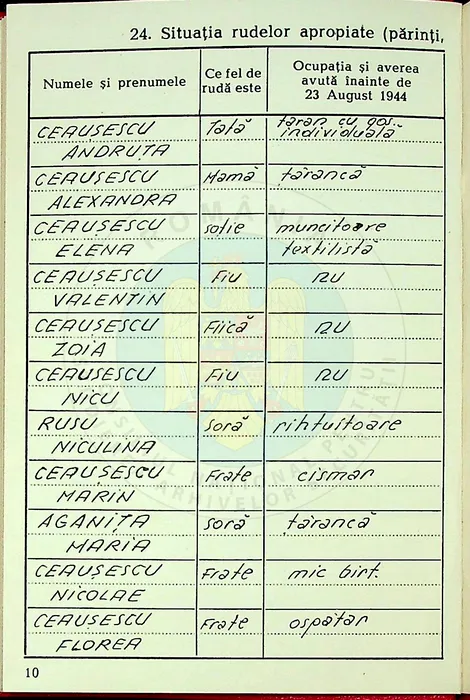 24. Situația rudelor apropiate (părinți,
Numele și prenumele
Ce fel de
rudă este
Ocupația și averea
avută înainte de
23 August 1944
CEAUȘESCU
ANDRUȚA
Tată
țăran cu gos.
individuală
CEAUȘESCU
ALEXANDRA
Mamă
țărancă
CEAUȘESCU
ELENA
soție
muncitoare
textilistă
CEAUȘESCU
VALENTIN
Fiu
NU
CEAUȘESCU
ZOIA
Fiică
NU
CEAUȘESCU
NICU
Fiu
NU
RUSU
NICULINA
soră
rihtuitoare
CEAUȘESCU
MARIN
Frate
cismar
AGANIȚA
MARIA
soră
țărancă
CEAUȘESCU
NICOLAE
Frate
mic birt.
CEAUSESCU
FLOREA
Frate
ospătar
10